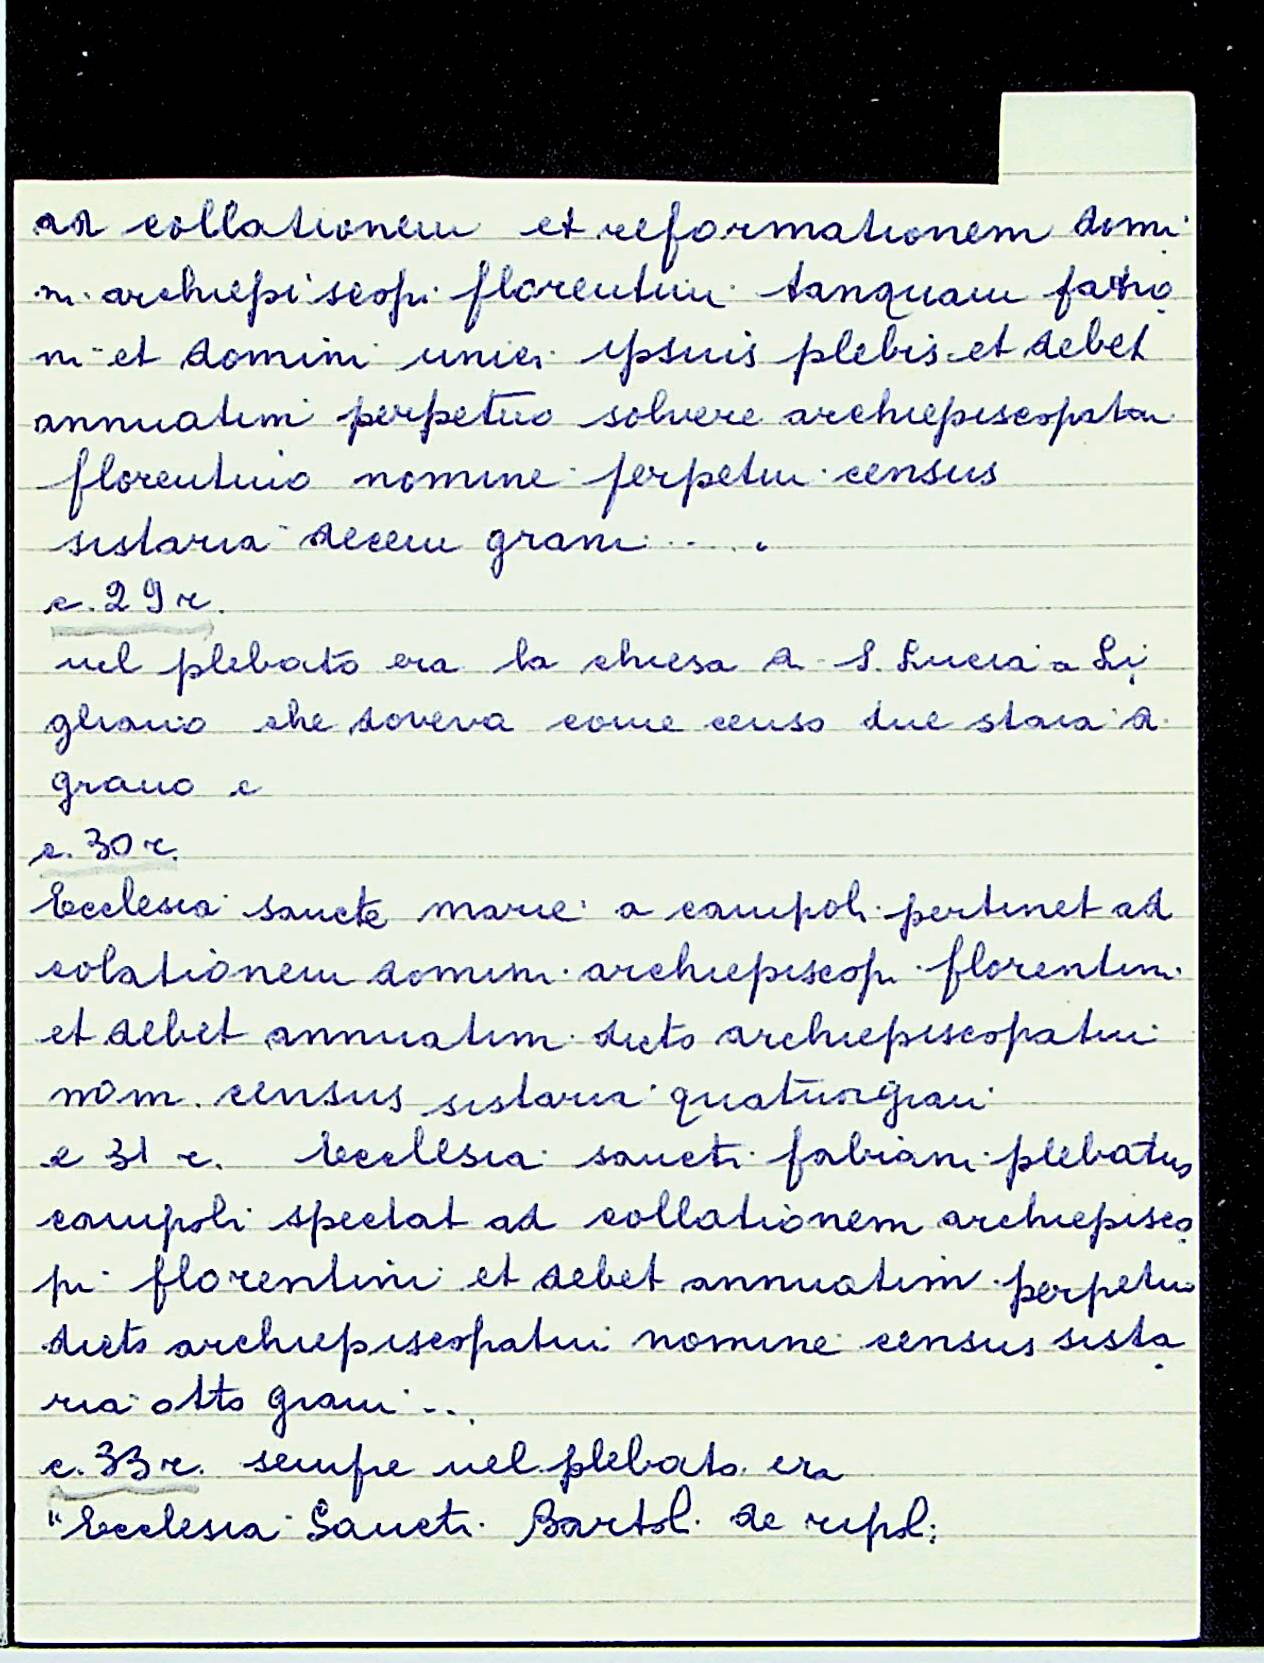 ad collationem et reformationem domi
ni archiepiscopi florentini tanquam patro
ni et domini unici ipsius plebis et debet
annuatim perpetuo solvere archiepiscopatui
florentino nomine perpetui census
sistaria decem grani ....
c. 29 r.
nel plebato era la chiesa di S. Lucia a Li
gliano che doveva come censo due staia di
grano e
c. 30 r.
Ecclesia sancte marie a campoli pertinet ad
colationem domini archiepiscopi florentini
et debet annuatim dicto archiepiscopatui
nom. census sistaria quatuor grani
c 31 r. Ecclesia sancti fabiani plebatus
campoli spectat ad collationem archiepisco
pi florentini et debet annuatim perpetuo
dicto archiepiscopatui nomine census sista
ria otto grani ...
c. 33 r. sempre nel plebato era
"Ecclesia Sancti Bartol. de ripol.